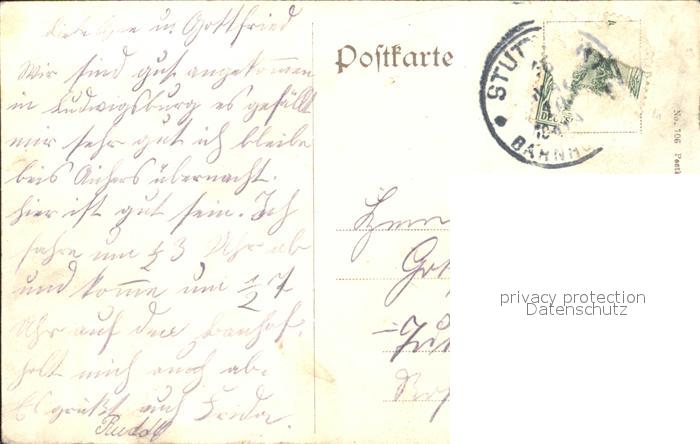 u. Gottfried
Wir sind gut angekommen
in Ludwigsburg es gefällt
mir sehr gut ich bleibe
beis übernacht.
hier ist gut sein. Ich
fahre um 1/2 3 Uhr ab
und komme um 1/2 7
Uhr auf den Banhof.
holt mich auch ab.
Es grüßt euch Frida.
Postkarte
STUT
BAHNH
No. 106 Postk
Herrn
Got
privacy protection
Datenschutz